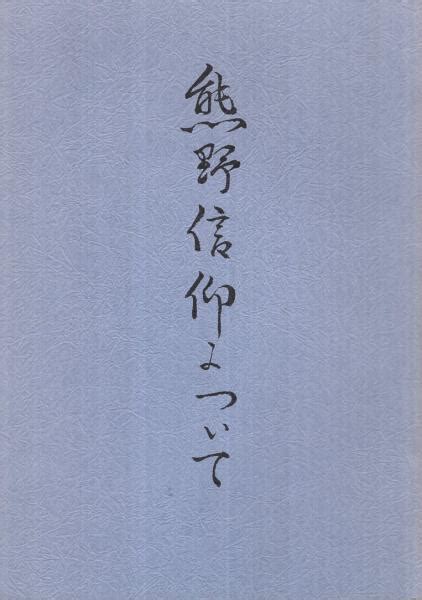 熊野信仰について